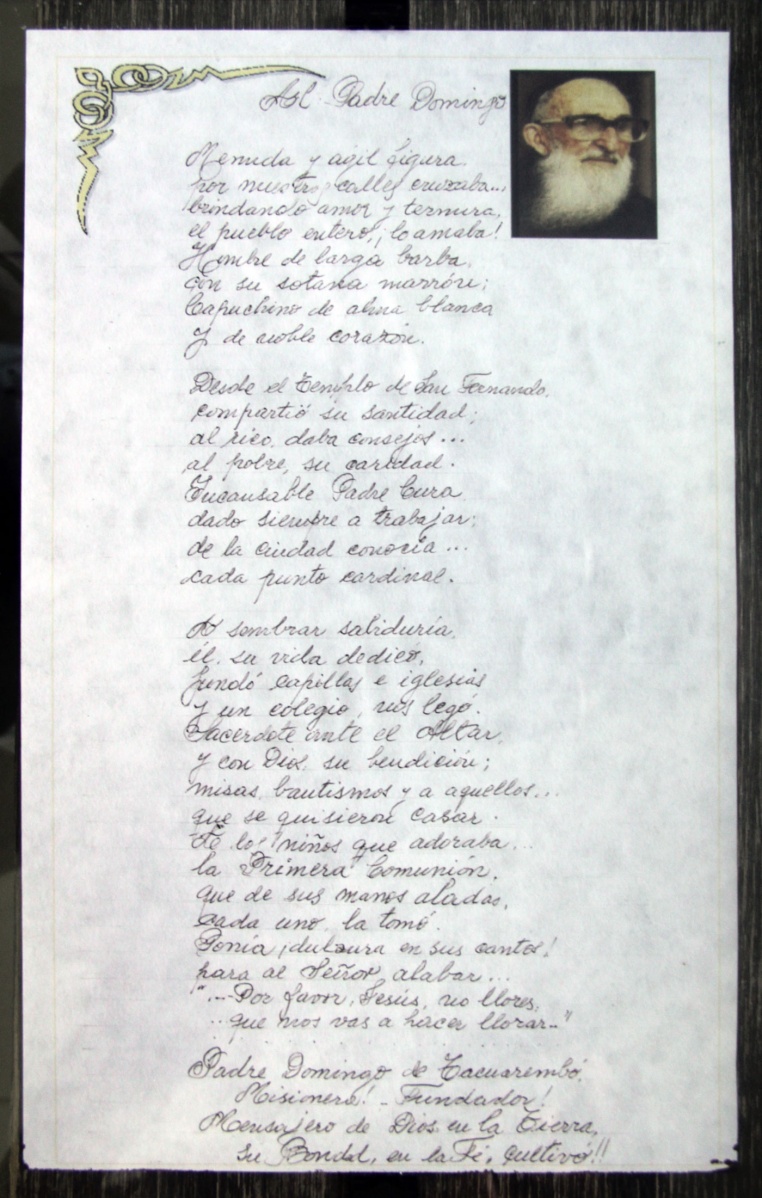 Al Padre Domingo
Menuda y agil figura,
por nuestras calles cruzaba...
brindando amor y ternura,
el pueblo entero, ¡lo amaba!
Hombre de larga barba,
con su sotana marrón;
Capuchino de alma blanca
y de noble corazón.
Desde el Templo de San Fernando,
compartió su santidad;
al rico, daba consejos...
al pobre, su caridad.
Incansable Padre Cura
dado siempre a trabajar;
de la ciudad conocía...
cada punto cardinal.
A sembrar sabiduría,
él, su vida dedicó,
fundó capillas e iglesias
y un colegio, nos legó.
Sacerdote ante el Altar,
y con Dios, su bendición;
misas, bautismos y a aquellos...
que se quisieron casar.
A los niños que adoraba...
la Primera Comunión,
que de sus manos aladas,
cada uno, la tomó.
Ponía ¡dulzura en sus cantos!
para al Señor, alabar...
"...Por favor, Jesús, no llores,
...que nos vas a hacer llorar..."
Padre Domingo de Tacuarembó,
Misionero! - Fundador!
Mensajero de Dios, en la Tierra,
su Bondad, en la Fé, cultivó!!